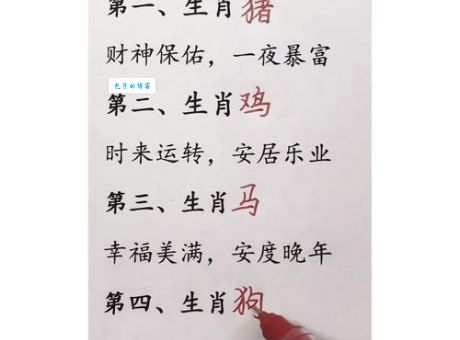 第一、生肖猪
财神保佑，一夜暴富
包子的博客
第二、生肖鸡
时来运转，安居乐业
第三、生肖马
幸福美满，安度晚年
第四、生肖狗